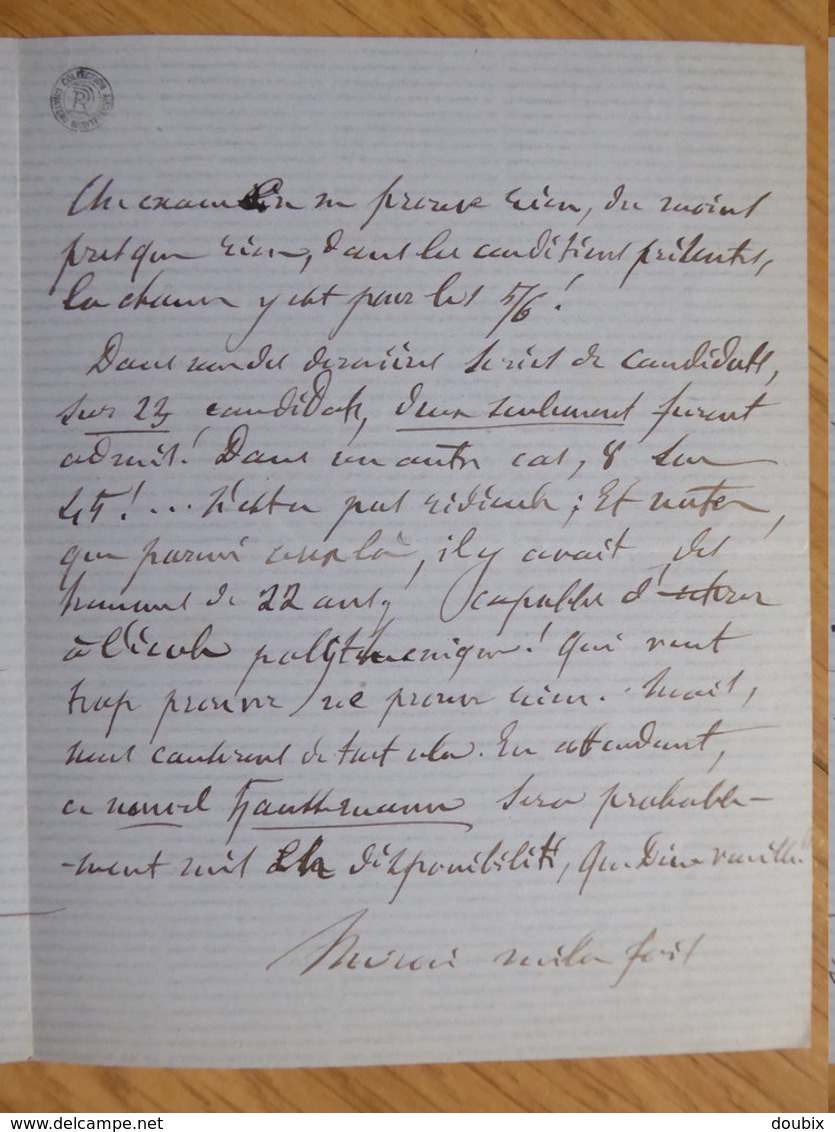 Un examen ne prouve rien, du moins
presque rien, dans les conditions présentes,
la chance y est pour les 5/6!
Dans une des dernières séries de candidats,
sur 23 candidats, deux seulement furent
admis! Dans un autre cas, 8 sur
45! ... N'est-ce pas ridicule; Et notez,
que parmi ceux là, il y avait des
hommes de 22 ans, capables d'entrer
à l'école polytechnique! Qui veut
trop prouver ne prouve rien. Mais,
nous causerons de tout cela. En attendant,
ce nouvel Haussmann sera probable-
-ment mis en disponibilité, que Dieu veuille!
Merci mille fois
www.delcampe.net
doubix